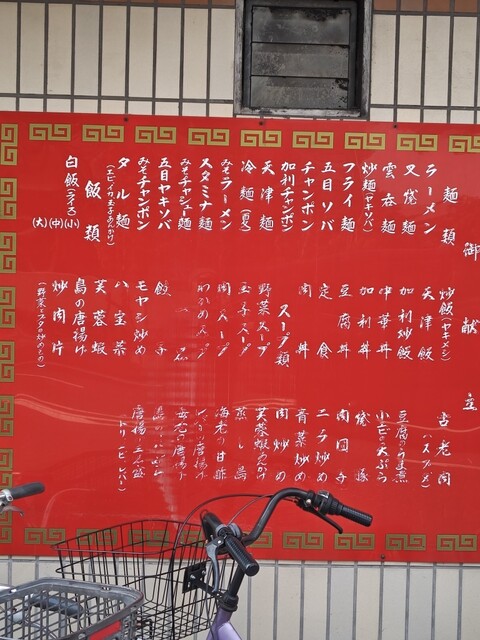 御献立
麺類
ラーメン
叉焼麺
雲呑麺
炒麺(ヤキソバ)
フライ麺
五目ソバ
チャンポン
加利チャンポン
天津麺
冷麺(夏)
みそラーメン
スタミナ麺
みそチャシュー麺
五目ヤキソバ
みそチャンポン
タル麺
(エビ、イカ、玉子あんかけ)
飯類
白飯(ライス)
(大)(中)(小)
炒飯(ヤキメシ)
天津飯
加利炒飯
中華丼
加利丼
豆腐丼
定食
肉丼
スープ類
野菜スープ
玉子スープ
肉スープ
わかめスープ
餃子
モヤシ炒め
八宝菜
芙蓉蝦
鳥の唐揚げ
炒肉片
(野菜ト ブタの炒めもの)
古老肉
(ハスブタ)
豆腐のうま煮
小エビの天ぷら
肉団子
ニラ炒め
青菜炒め
肉炒め
芙蓉蝦あんかけ
蒸し鳥
海老の甘酢